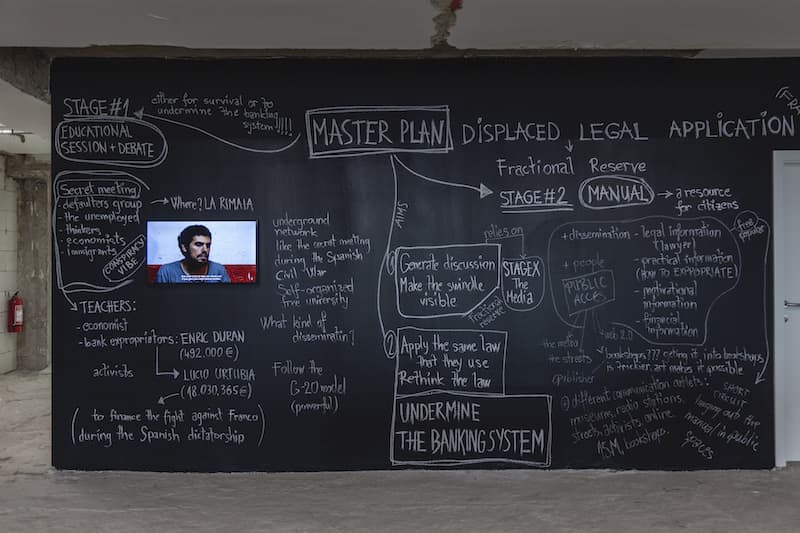 STAGE#1
EDUCATIONAL
SESSION + DEBATE
either for survival or to
undermine the banking
system!!!!
MASTER PLAN
DISPLACED LEGAL APPLICATION
Fractional Reserve
STAGE#2
MANUAL
a resource
for citizens
Secret meeting
- defaulters group
- the unemployed
- thinkers
- economists
- immigrants
CONSPIRACY
VIBE
Where? LA RIMAIA
TEACHERS:
- economist
- bank expropriators: ENRIC DURAN
(492.000 €)
activists
LUCIO URTUBIA
(48.030,365 €)
(to finance the fight against Franco
during the Spanish dictatorship)
underground
network
like the secret meeting
during the Spanish
Civil War
Self-organized
free university
What kind of
dissemination?
Follow the
G-20 model
(powerful)
AIMS
① Generate discussion
Make the swindle
visible
relies on
STAGEX
The
Media
Fractional
reserve
② Apply the same law
that they use
Rethink the law
UNDERMINE
THE BANKING SYSTEM
+ dissemination
+ people
PUBLIC
ACCESS
- legal information
(lawyer)
- practical information
(HOW TO EXPROPRIATE)
- motivational
information
- Financial
information
the media
the streets
@publisher
web 2.0
bookshops??? getting it into bookshops
is trickier, art makes it possible
@ different communication outlets:
museums, radio stations,
streets, activists online
bookshops.
SHORT
CIRCUIT
manual in public
spaces